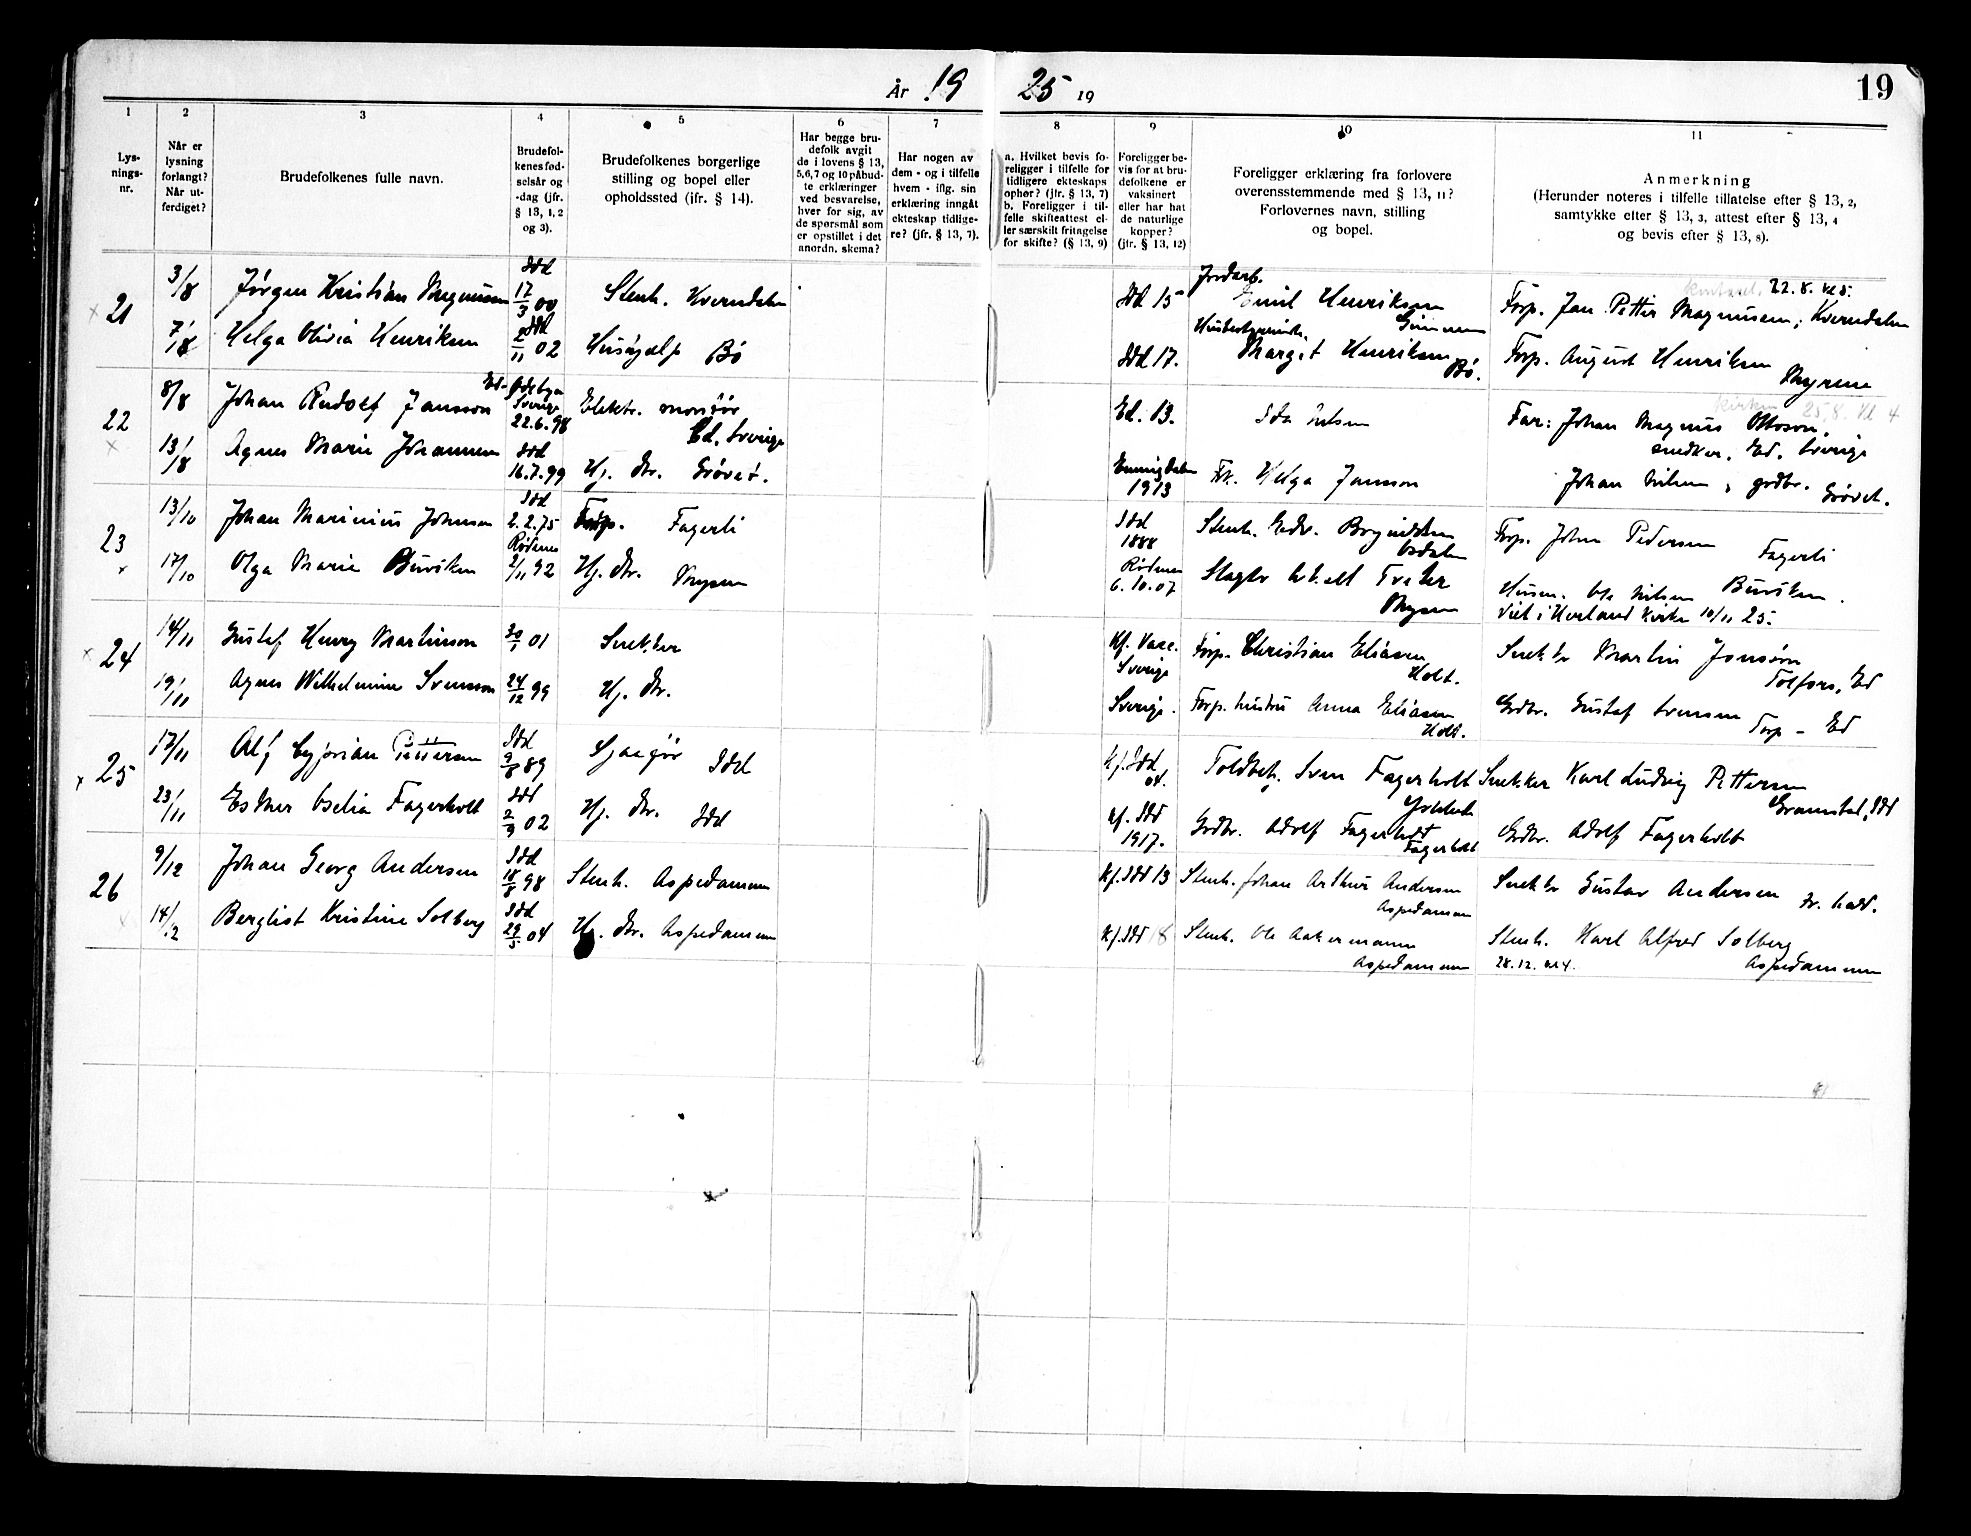 År 19 25 19
19
1
2
3
4
5
6
7
8
9
10
11
Lys-
nings-
nr.
Når er
lysning
forlangt?
Når ut-
ferdiget?
Brudefolkenes fulle navn.
Brudefol-
kenes fød-
selsår og
-dag (jfr.
§ 13, 1, 2
og 3).
Brudefolkenes borgerlige
stilling og bopel eller
opholdssted (jfr. § 14).
Har begge bru-
defolk avgit
de i lovens § 13,
5,6,7 og 10 påbud-
te erklæringer
ved besvarelse,
hver for sig, av
de spørsmål som
er opstillet i det
anordn. skema?
Har nogen av
dem - og i tilfelle
hvem - iflg. sin
erklæring inngåt
ekteskap tidlige-
re? (jfr. § 13, 7).
a. Hvilket bevis fo-
religger i tilfelle for
tidligere ekteskaps
ophør? (jfr. § 13, 7)
b. Foreligger i til-
felle skifteattest el-
ler særskilt fritagelse
for skifte? (§ 13, 9)
Foreligger be-
vis for at bru-
defolkene er
vaksinert
eller har hat
de naturlige
kopper?
(jfr. § 13, 12)
Foreligger erklæring fra forlovere
overensstemmende med § 13, 11?
Forlovernes navn, stilling
og bopel.
Anmerkning
(Herunder noteres i tilfelle tillatelse efter § 13, 2,
samtykke efter § 13, 3, attest efter § 13, 4
og bevis efter § 13, 8).
x 21
3/8 Jörgen Kristian Magnussen Idd 17/3 00 Stenh. Kverndalen Idd 15 Jordarb. Emil Henriksen 22.8. kl 5. Forp. Jan Petter Magnussen, Kverndalen
7/8 Helga Olivia Henriksen Idd 2/11 02 Hushjelp Bö Idd 17. Margit Henriksen Bö. Forp. August Henriksen Myrene
22 x
8/8 Johan Rudolf Jansson Ed- Sverige 22.6.98 Elektr. montör Ed, Sverige Ed. 13. Ida Nilsen kirken 25.8. kl 4 Far: Johan Magnus Ottoson, snedker, Ed, Sverige
13/8 Agnes Marie Johannesen Idd 16.7.99 Hj. dtr. Grövet. Enningdalen 1913 Frk. Helga Jansson Johan Nilsen, grdbr. Grövet.
23 x
13/10 Johan Marinius Johnsen Idd 2.2.75 Forp. Fagerli Idd 1888 Stenh. Edv. Bryngildsen Forp. John Pedersen Fagerli
17/10 Olga Marie Buviken Rödenes 2/11 92 Hj. dtr. Mysen Rödenes 6.10.07 Mysen Husm. Ole Nilsen Buviken.
Viet i Herland kirke 10/11 25.
x 24
14/11 Gustaf Henry Martinson 30/1 01 Snekker Kf. Vacc. Sverige Forp. Christian Eliasen Holt. Snekker Martin Jonsson Tolfors, Ed
19/11 Agnes Wilhelmine Svensson 24/12 99 Hj. dtr. Sverige. Forp. hustru Anna Eliasen Holt. Grdbr. Gustaf Svensson Torp - Ed
x 25
17/11 Alf Cyprian Pettersen Idd 9/8 89 Sjaaför Idd Kf. Idd 04. Toldbet. Sven Fagerholt Snekker Karl Ludvig Pettersen Idd
23/11 Esther Oselia Fagerholt Idd 2/9 02 Hj. dtr. Idd Kf. Idd 1917. Grdbr. Adolf Fagerholt Fagerholt Grdbr. Adolf Fagerholt
26 x
9/12 Johan Georg Andersen Idd 18/8 98 Stenh. Aspedammen Kf. Idd 13 Stenh. Johan Arthur Andersen Aspedammen Snekker Gustav Andersen Fr. hald.
14/12 Bergliot Kristine Solberg Idd 29/5 04 Hj. dtr. Aspedammen Kf. Idd 18 Stenh. Ole Aakermann Aspedammen Stenh. Karl Alfred Solberg Aspedammen
28.12. kl 4.